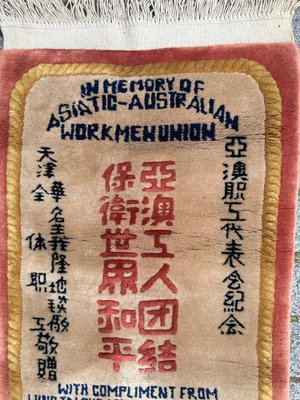 IN MEMORY OF
ASIATIC-AUSTRALIAN
WORKMEN UNION
亞澳职工代表会纪念
亞澳工人团结
保衛世界和平
天津華名義隆地毯廠
全体职工敬贈
WITH COMPLIMENT FROM